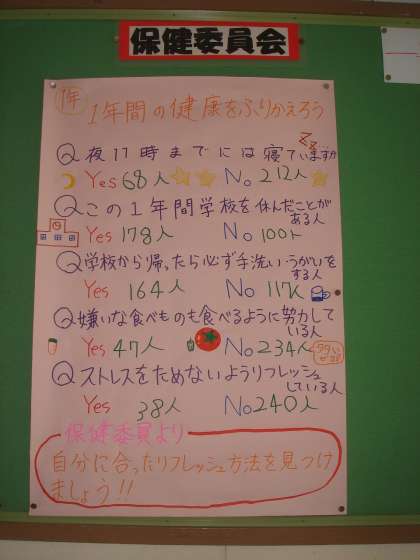 保健委員会
1年
1年間の健康をふりかえろう
Q 夜11時までには寝ていますか
Yes 68人 No 212人
Q この1年間学校を休んだことが
ある人
Yes 178人 No 100人
Q 学校から帰ったら必ず手洗い・うがいを
する人
Yes 164人 No 117人
Q 嫌いな食べものも食べるように努力して
いる人
Yes 47人 No 234人
Q ストレスをためないようリフレッシュ
している人
Yes 38人 No 240人
保健委員より
自分に合ったリフレッシュ方法を見つけ
ましょう!!